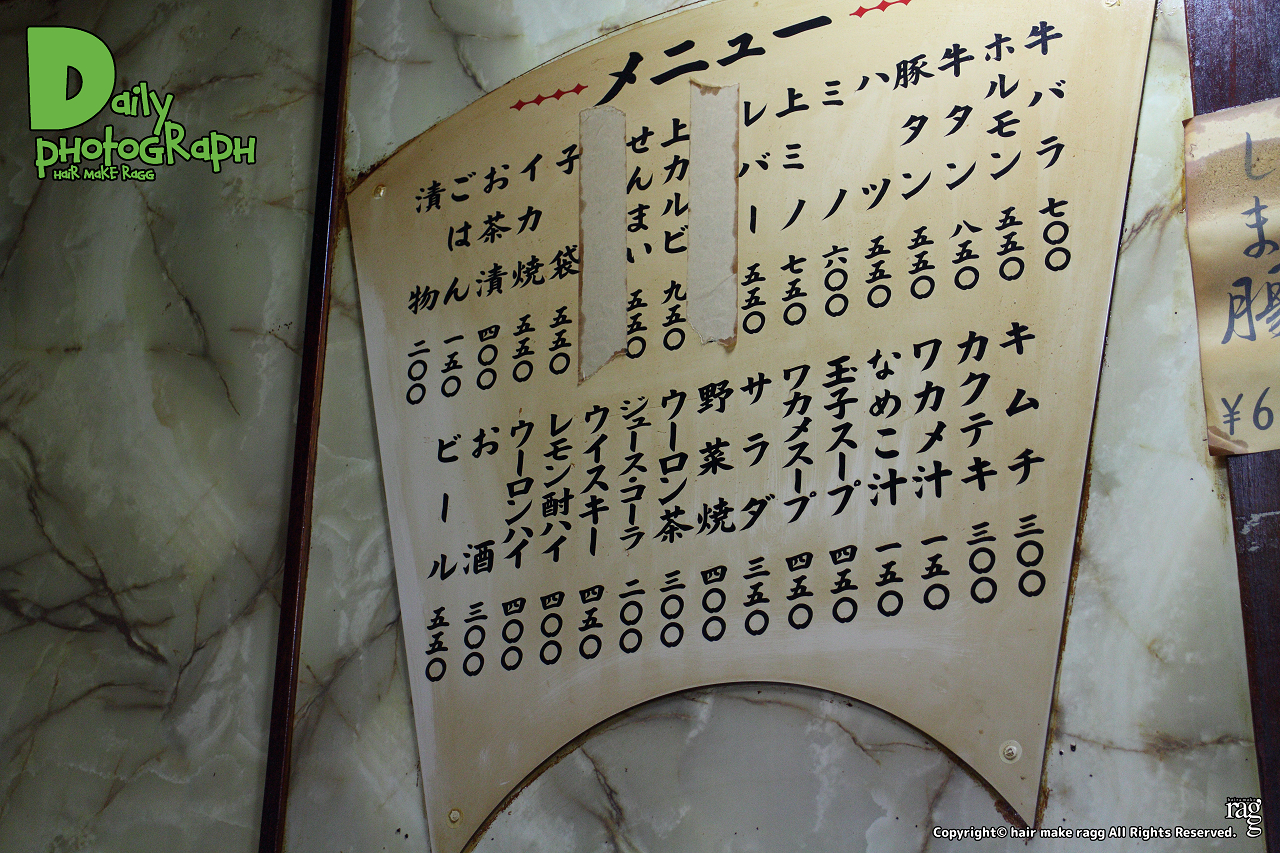 Daily
photograph
HAIR MAKE RAGG
メニュー
牛バラ 七〇〇
ホルモン 五五〇
牛タン 八五〇
豚タン 五五〇
ハツ 五五〇
ミノ 六〇〇
上ミノ 七五〇
レバー 五五〇
上カルビ 九五〇
せんまい 五五〇
子袋 五五〇
イカ焼 五五〇
お茶漬 四〇〇
ごはん 一五〇
漬物 二〇〇
キムチ 三〇〇
カクテキ 三〇〇
ワカメ汁 一五〇
なめこ汁 一五〇
玉子スープ 四五〇
ワカメスープ 四五〇
サラダ 三五〇
野菜焼 四〇〇
ウーロン茶 三〇〇
ジュース・コーラ 二〇〇
ウイスキー 四五〇
レモン酎ハイ 四〇〇
ウーロンハイ 四〇〇
お酒 三〇〇
ビール 五五〇
しま腸
¥6
hair make
ragg
Copyright© hair make ragg All Rights Reserved.